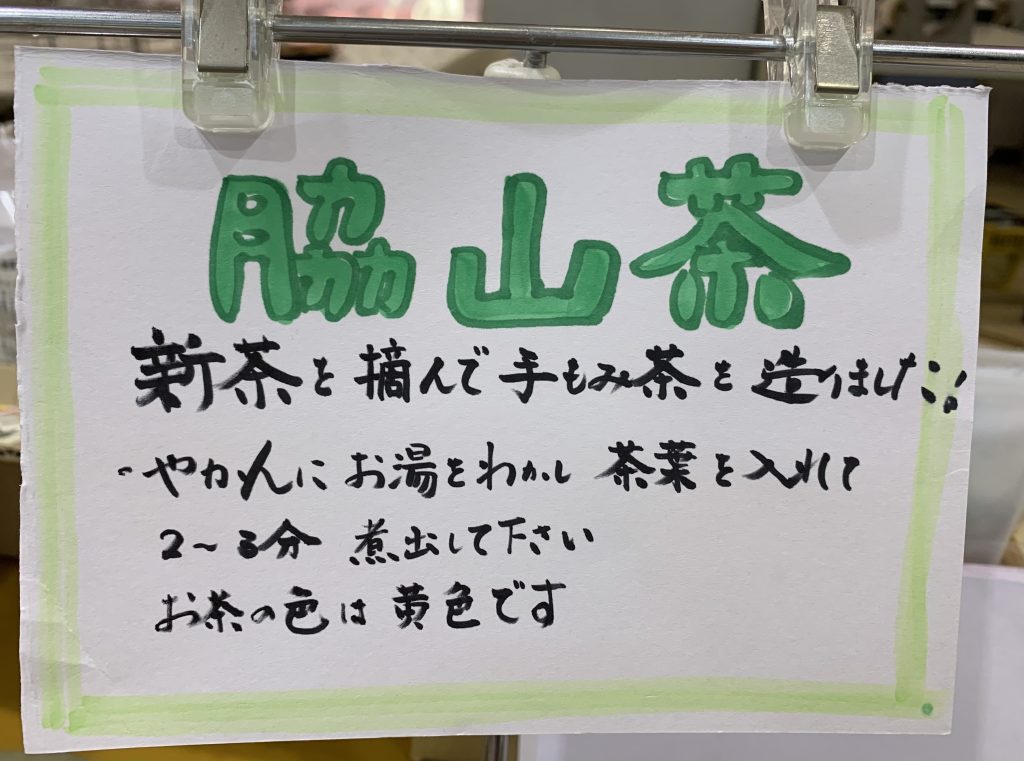 脇山茶
新茶を摘んで手もみ茶を造りました!
・やかんにお湯をわかし 茶葉を入れて
2～3分 煮出して下さい
お茶の色は黄色です